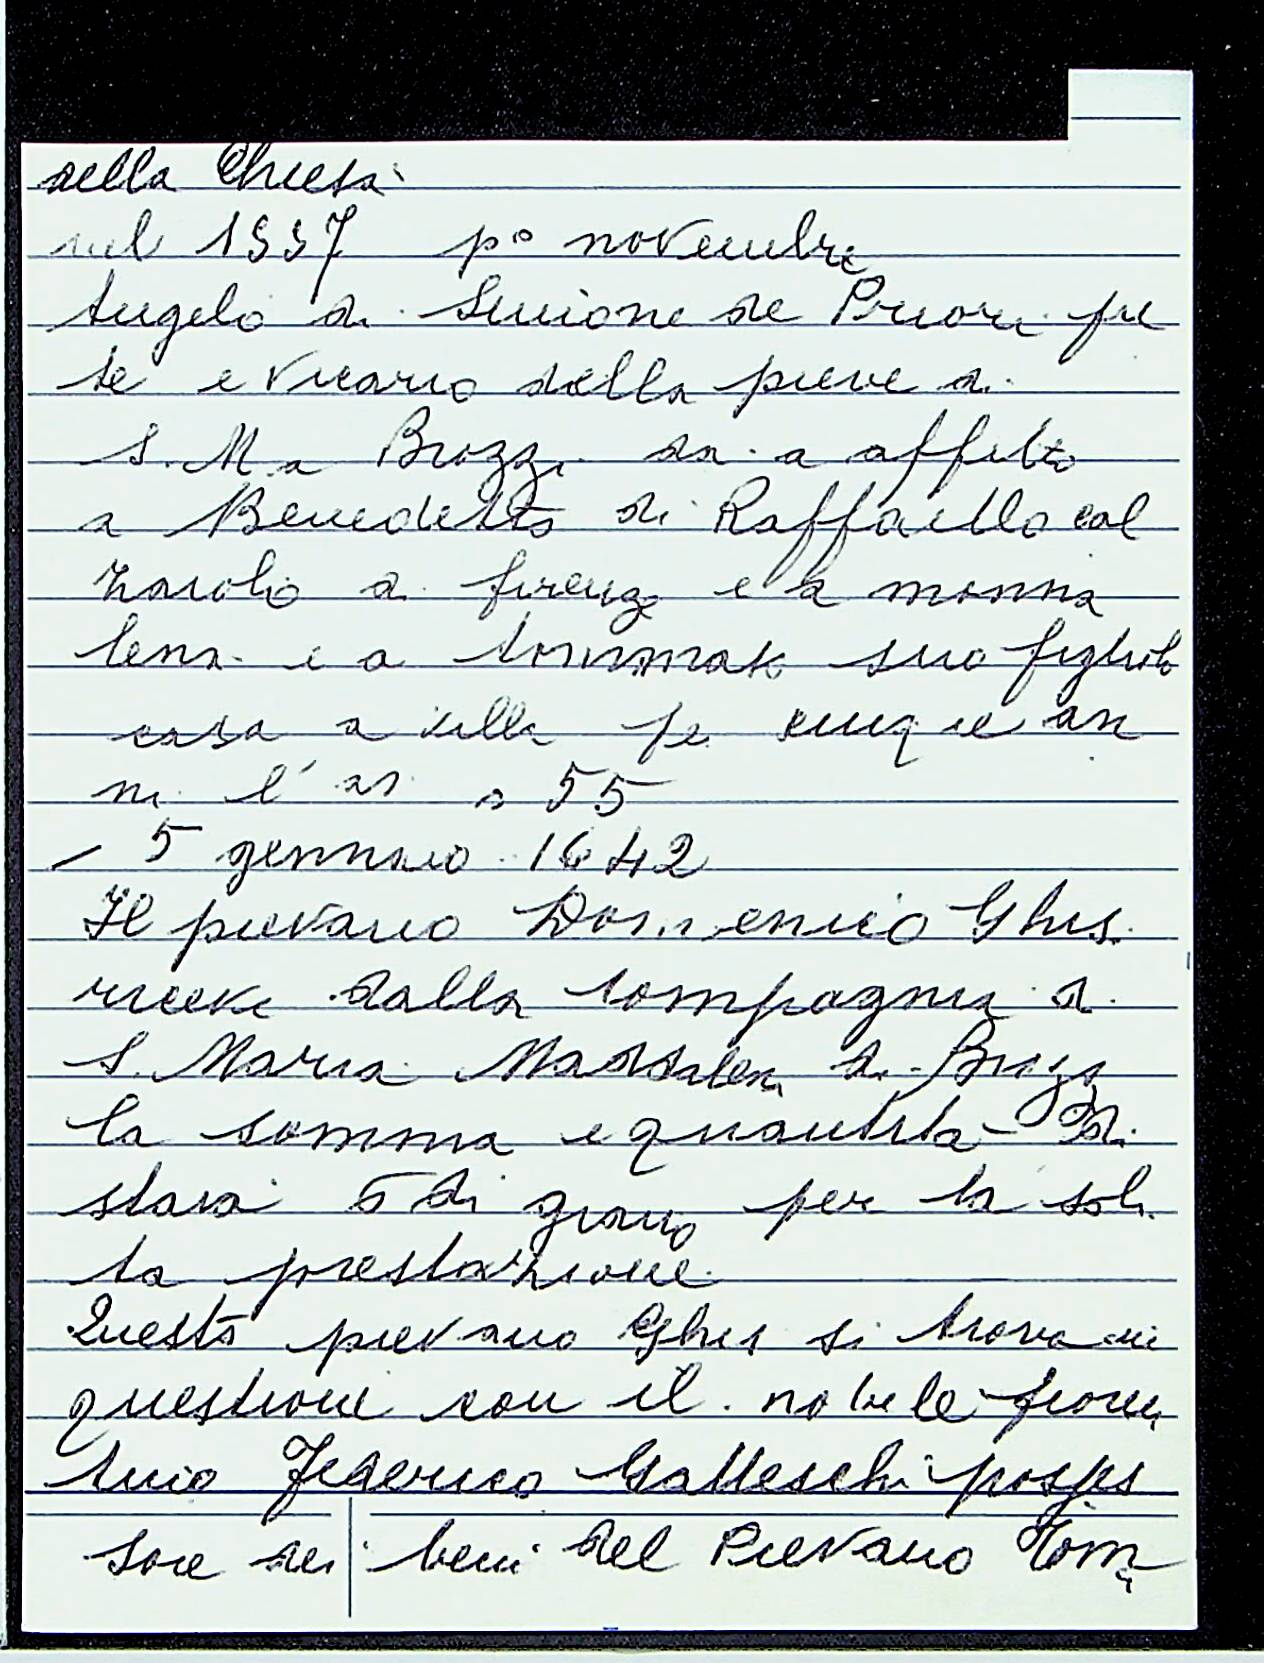 della Chiesa
nel 1597 po novembre
Angelo di Simione de Priori pre
te e vicario della pieve di
S. M a Brozzi da a affitto
a Benedetto di Raffaello cal
zaiolo a firenze e a monna
lena e a tommaso suo figliolo
casa a per cinque an
ni l'
- 5 gennaio 1642
Il pievano Domenico Ghis.
riceve dalla Compagnia di
S. Maria Maddalena di Brozzi
la somma e quantità di
staia 5 di grano per la soli
ta prestazione.
Questo pievano Ghis si trova in
questione con il nobile fioren
tino Federico Galleschi posses
sore dei beni del Pievano Tom